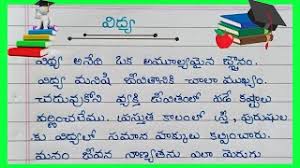 విద్య
విద్య అనేది ఒక అమూల్యమైన జ్ఞానం.
విద్య మనిషి జీవితానికి చాలా ముఖ్యం.
చదువుకోని వ్యక్తి జీవితంలో పడే కష్టాలు
వర్ణించలేము. ప్రస్తుత కాలంలో స్త్రీ, పురుషుల
కు విద్యలో సమాన హక్కులు కల్పించారు.
మనం జీవన నాణ్యతను ఎలా మెరుగు